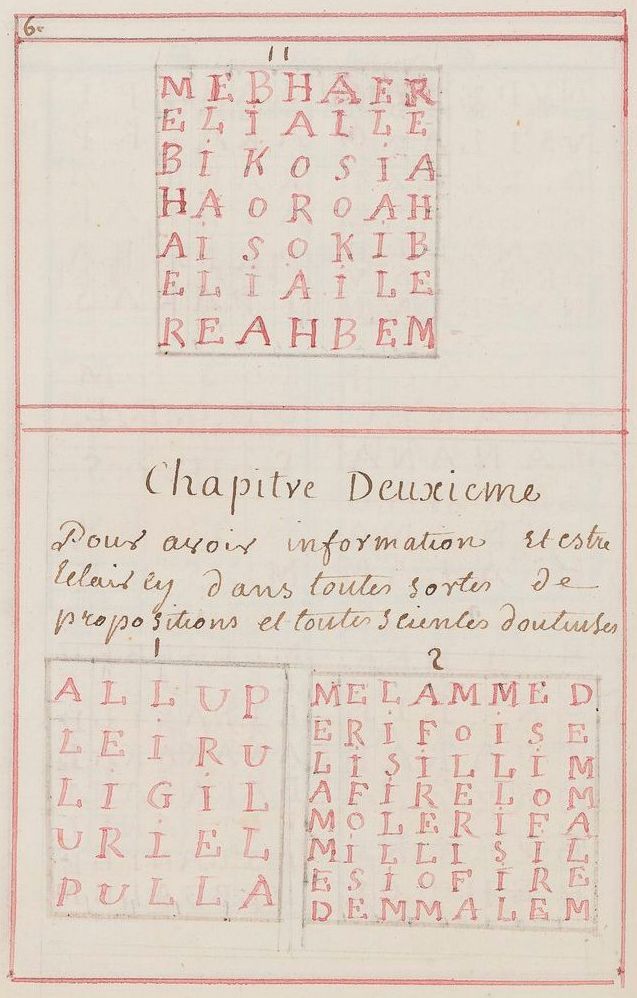 6e
11
M E B H A E R
E L I A I L E
B I K O S I A
H A O R O A H
A I S O K I B
E L I A I L E
R E A H B E M
Chapitre Deuxieme
Pour avoir information Et estre
Eclaircy dans toutes sortes de
propositions et toutes Sciences douteuses
1
A L L U P
L E I R U
L I G I L
U R I E L
P U L L A
2
M E L A M M E D
E R I F O I S E
L I S I L L I M
A F I R E L O M
M O L E R I F A
M I L L I S I L
E S I O F I R E
D E M M A L E M